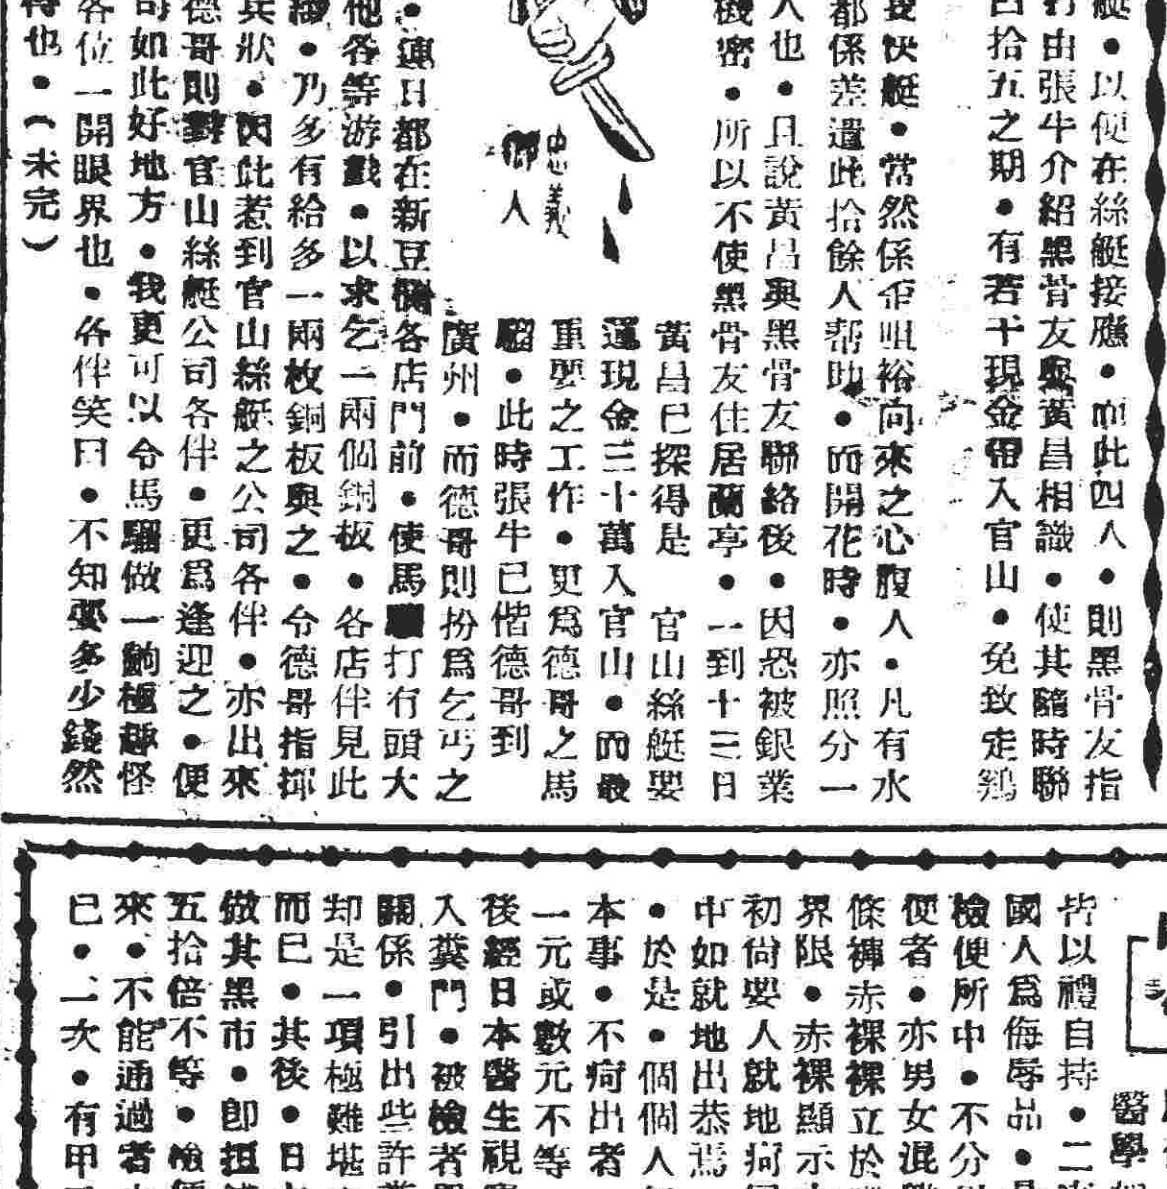 艇•以便在絲艇接應•而此四人•則黑骨友指
打由張牛介紹黑骨友與黃昌相識•使其隨時聯
四拾五之期•有若干現金帶入官山•免致走鷄
長快艇•當然係歪咀裕向來之心腹人•凡有水
都係差遣此拾餘人帮助•而開花時•亦照分一
人也•且說黃昌與黑骨友聯絡後•因恐被銀業
機密•所以不使黑骨友住居蘭亭•一到十三日
忠義
鄉人
黃昌已探得是 官山絲艇要
運現金三十萬入官山•而最
重要之工作•更爲德哥之馬
騮•此時張牛已偕德哥到
廣州•而德哥則扮爲乞丐之
•連日都在新豆欄各店門前•使馬騮打冇頭大
他各等游戲•以求乞一兩個銅板•各店伴見此
•乃多有給多一兩枚銅板與之•令德哥指揮
兵狀•因此惹到官山絲艇之公司各伴•亦出來
德哥則對官山絲艇公司各伴•更爲逢迎之•便
司如此好地方•我更可以令馬騮做一齣極趣怪
各位一開眼界也•各伴笑曰•不知要多少錢然
得也•(未完)
醫學
皆以禮自持•二
國人爲侮辱品•
檢便所中•不分
便者•亦男女混
條褲赤裸裸立於
界限•赤裸顯示
初尙要人就地疴
中如就地出恭焉
•於是•個個人
本事•不疴出者
一元或數元不等
後經日本醫生視
入糞門•被檢者
關係•引出些許
却是一項極難堪
而已•其後•日
做其黑市•卽担
五拾倍不等•檢
來•不能通過者
已•一次•有甲